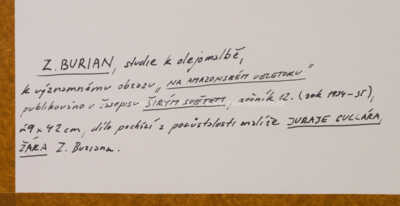 Z. BURIAN, studie k olejomalbě,
k významnému obrazu „NA AMAZONSKÉM VELETOKU“
publikováno v časopisu ŠIRÝM SVĚTEM, ročník 12. (rok 1934-35),
29 x 42 cm, dílo pochází z pozůstalosti malíře JURAJE GULLÁRA,
ŽÁKA Z. Buriana.